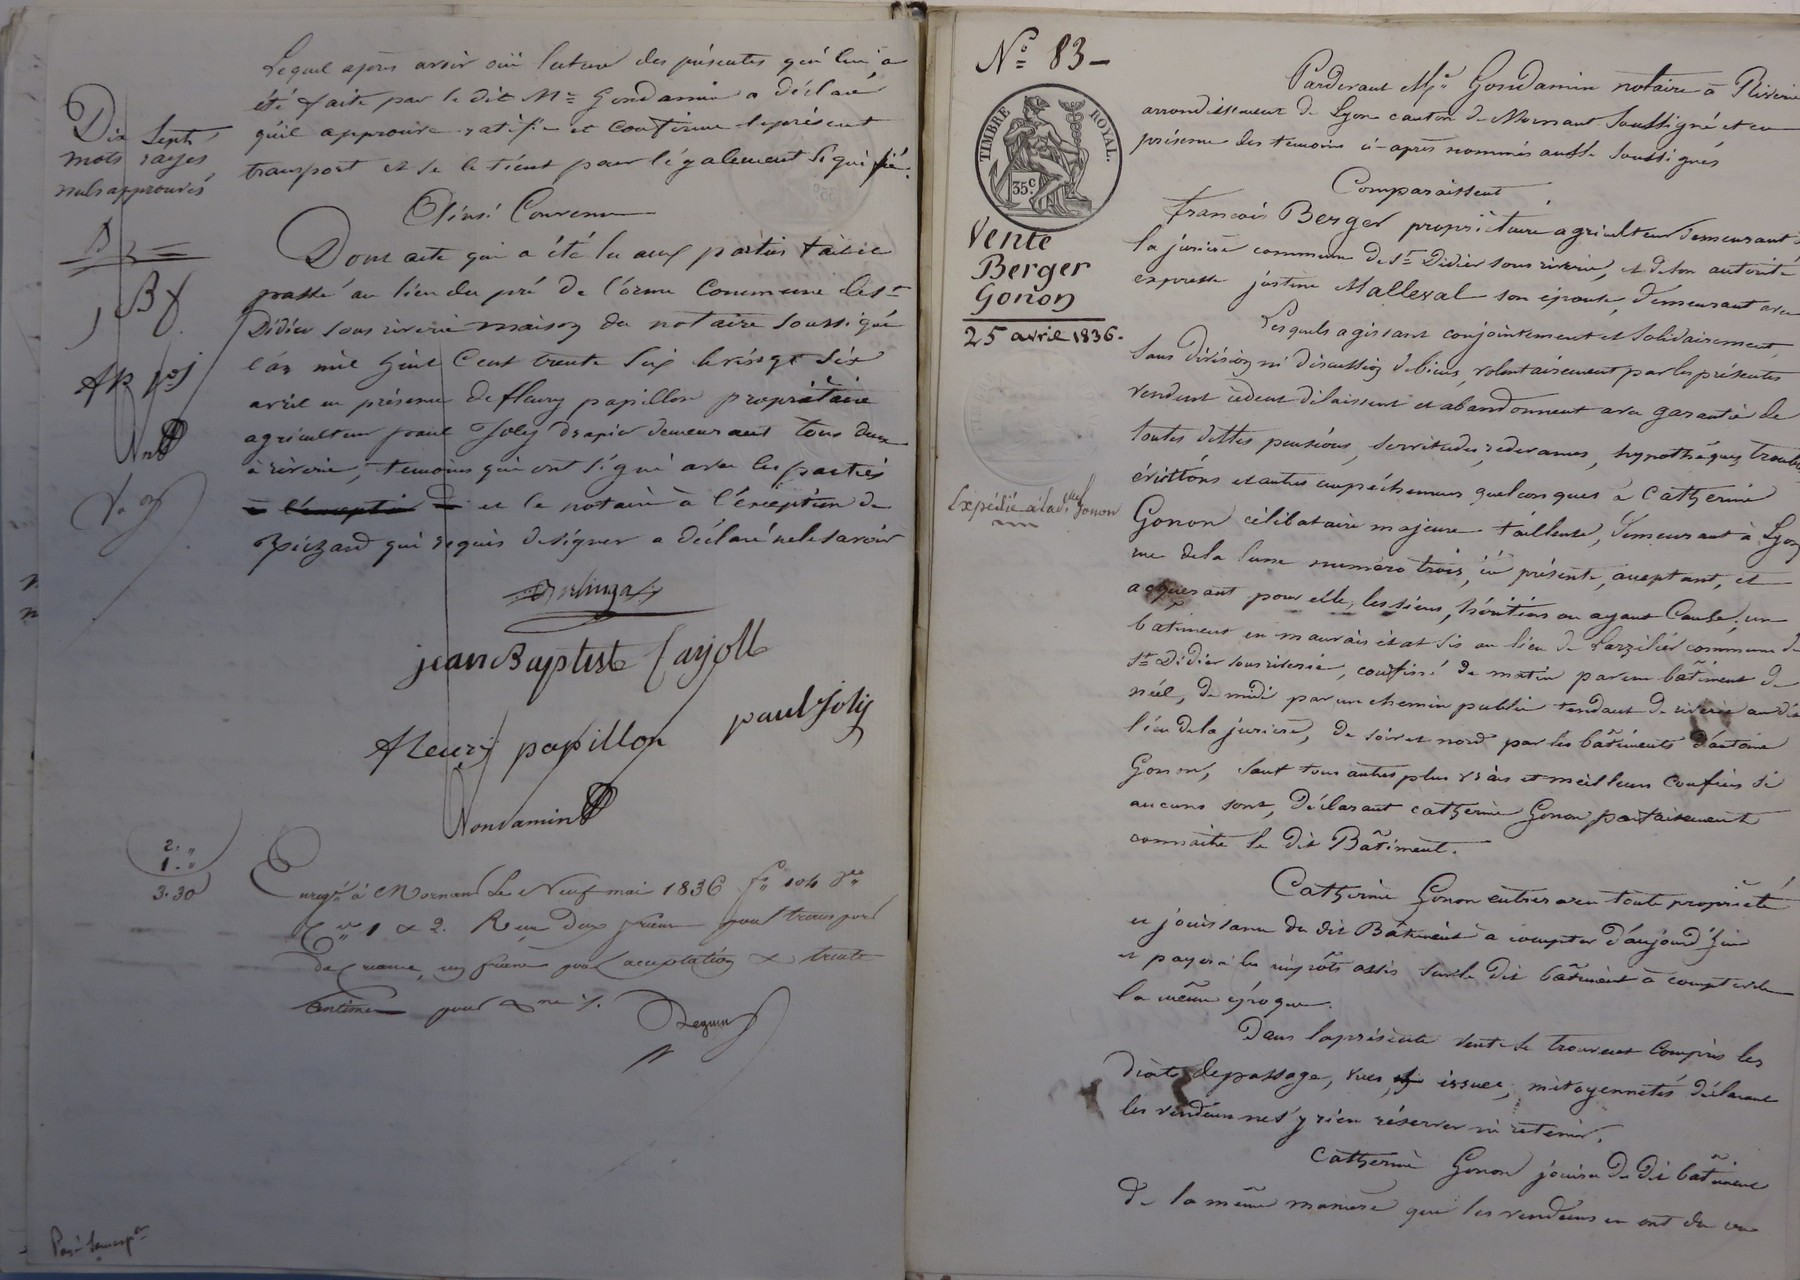 Lequel après avoir ouï lecture des présentes qui lui a
été faite par le dit Me Gondamin a déclaré
qu'il approuve ratifie et confirme le présent
transport et se le tient pour légalement signifié.
Dix Sept
mots rayés
nuls approuvés
Ainsi Convenu
Dont acte qui a été lu aux parties fait et
passé au lieu du pré de l'orme Commune de St
Didier sous riverie maison du notaire soussigné
l'an mil huit Cent trente Six le vingt six
avril en présence de fleury papillon propriétaire
agriculteur paul Joly drapier demeurant tous deux
à riverie, témoins qui ont signé avec les parties
à l'exception de et le notaire à l'exception de
qui requis de signer a déclaré ne le savoir
jean Baptiste
fleury papillon
paul Joly
Gondamin
2. "
1. "
3.30
Enregté à Mornant Le Neuf mai 1836 f° 104 Vo
Ces 1 & 2. Reçu Deux francs pour transport
De Créance, un franc pour acceptation & trente
Centimes pour Dme %.
N° 83
TIMBRE ROYAL.
35c
Vente
Berger
Gonon
25 avril 1836.
Expédié à la dlle Gonon
Pardevant Me Gondamin notaire à Riverie
arrondissement de Lyon canton de Mornant Soussigné et en
présence des témoins ci-après nommés aussi Soussignés
Comparaissent
François Berger propriétaire agriculteur demeurant à
la juriere commune de St Didier sous riverie, et de son autorité
expresse justine Malleval son épouse, demeurant avec
Lesquels agissant conjointement et Solidairement
Sans division ni discussion de biens, volontairement par les présentes
vendent cèdent délaissent et abandonnent avec garantie de
toutes dettes pensions, servitudes, redevances, hypothèques, troubles
évictions et autres empêchemens quelconques à Catherine
Gonon célibataire majeure tailleuse, demeurant à Lyon
rue de la lune numéro trois, ici présente, acceptant, et
acquerant pour elle, les siens, héritiers ou ayant Cause, un
bâtiment en mauvais état sis au lieu de commune de
St Didier sous riverie, confiné de matin par un bâtiment de
néel, de midi par un chemin public tendant de riverie au dit
lieu de la juriere, de soir et nord par les bâtiments d'antoine
Gonon, sauf tous autres plus vrais et meilleurs Confins si
aucuns sont, déclarant catherine Gonon parfaitement
connaitre le dit Bâtiment.
Catherine Gonon entrera en toute propriété
et jouissance du dit Bâtiment à compter d'aujourd'hui
et payera les impôts assis sur le dit bâtiment à compter de
la même époque.
Dans la présente vente se trouvent Compris les
droits de passage, vues, issues, mitoyennetés déclarant
les vendeurs ne s'y rien réserver ni retenir.
Catherine Gonon jouira du dit bâtiment
de la même manière que les vendeurs en ont du en